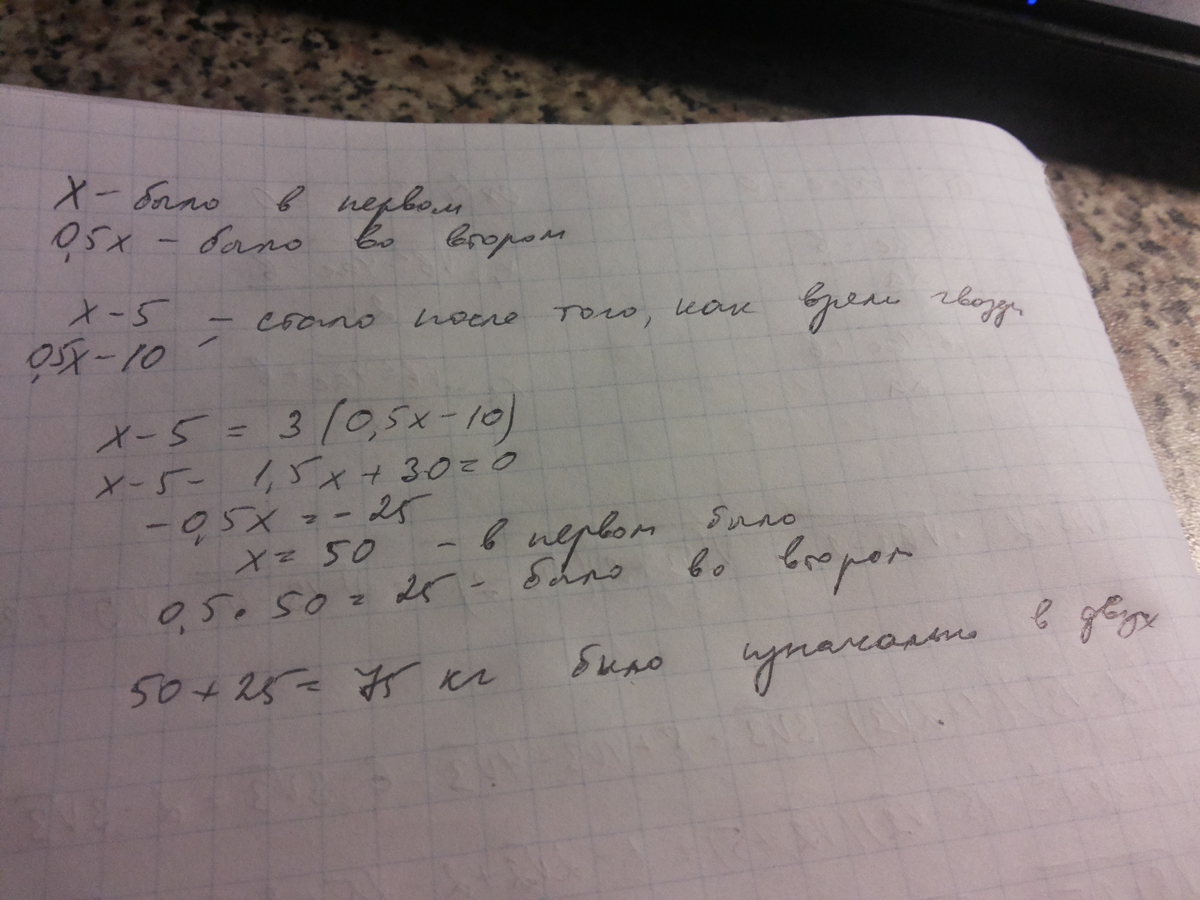 x - было в первом
0,5x - было во втором
x - 5 - стало после того, как взяли гвозди
0,5x - 10 -
x - 5 = 3 (0,5x - 10)
x - 5 - 1,5x + 30 = 0
-0,5x = -25
x = 50 - в первом было
0,5 · 50 = 25 - было во втором
50 + 25 = 75 кг было изначально в двух